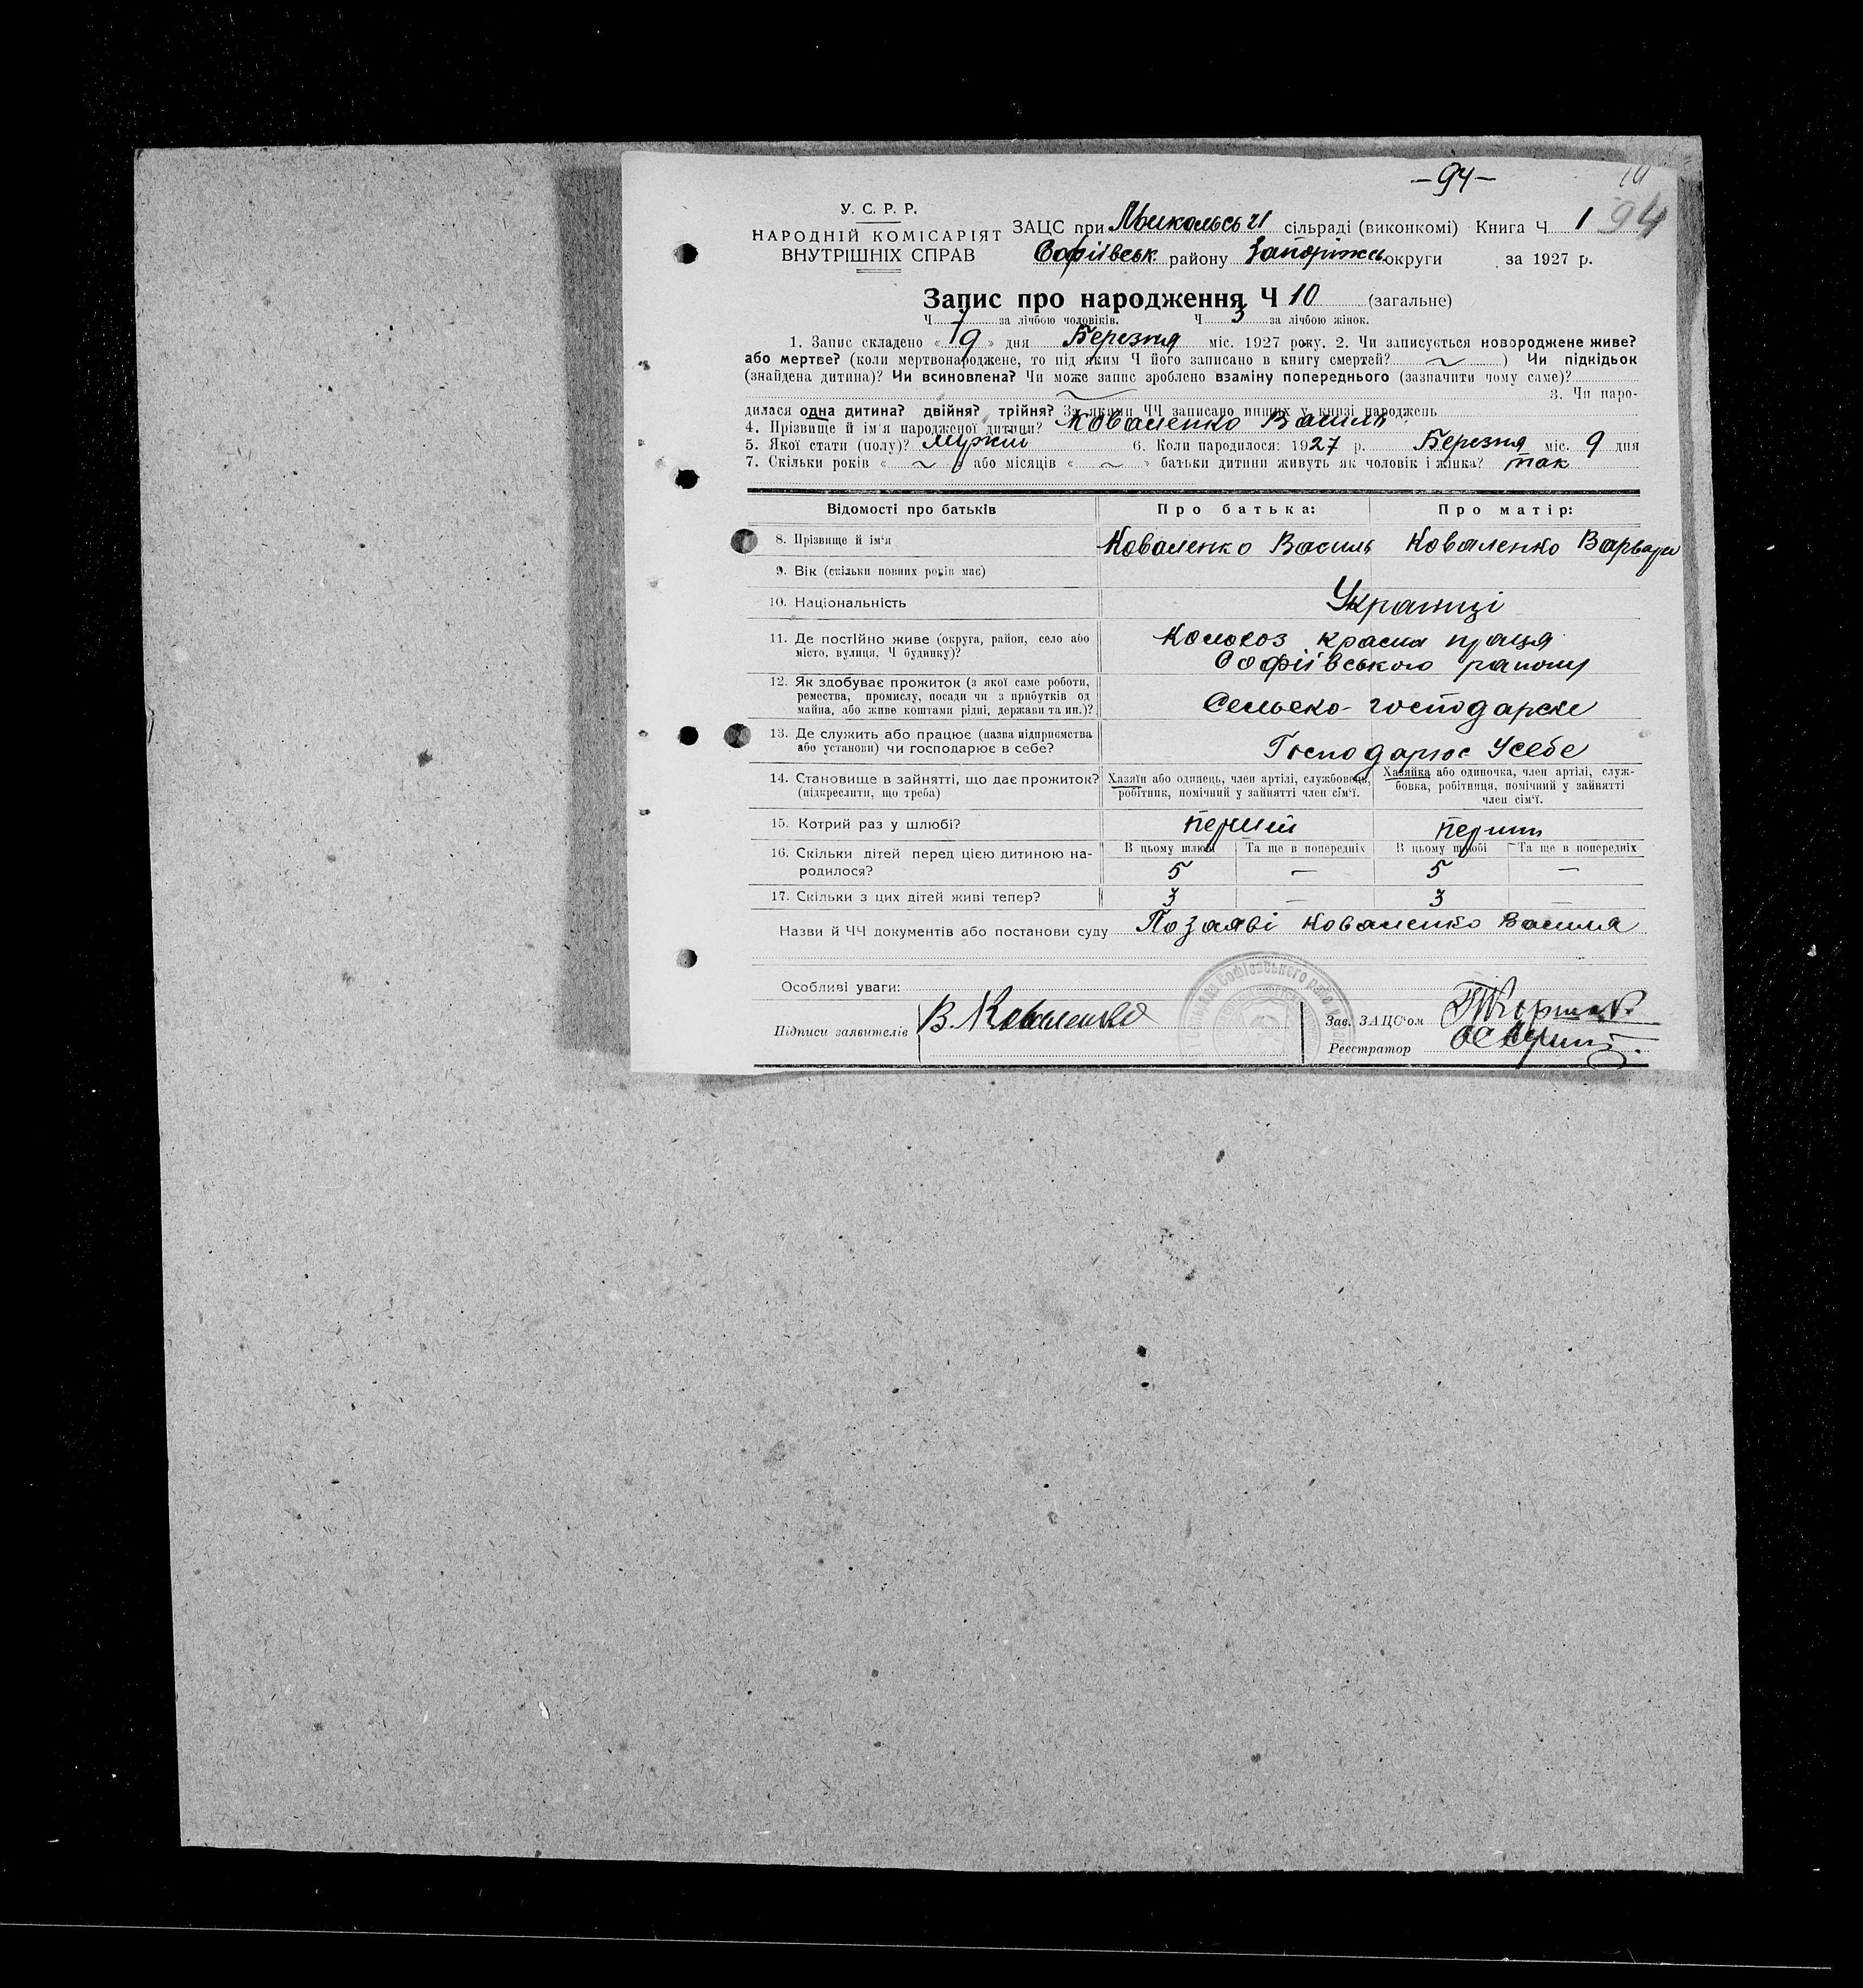 —94—
94
У. С. Р. Р.
НАРОДНІЙ КОМІСАРІЯТ
ВНУТРІШНІХ СПРАВ
ЗАЦС при сільраді (виконкомі) Книга Ч 1
Софіївськ району Запоріжсь округи за 1927 р.
Запис про народження Ч 10 (загальне)
Ч 7 за лічбою чоловіків. Ч 3 за лічбою жінок.
1. Запис складено «19» дня Березня міс. 1927 року. 2. Чи записується новороджене живе?
або мертве? (коли мертвонароджене, то під яким Ч його записано в книгу смертей? ~) Чи підкідьок
(знайдена дитина)? Чи всиновлена? Чи може запис зроблено взаміну попереднього (зазначити чому саме)?
~ 3. Чи наро-
дилася одна дитина? двійня? трійня? За якими ЧЧ записано инших у книзі народжень
4. Прізвище й ім'я народженої дитини? Коваленко Василь
5. Якої стати (полу)? 6. Коли народилося: 1927 р. Березня міс. 9 дня
7. Скільки років «~» або місяців «~» батьки дитини живуть як чоловік і жінка? так
Відомості про батьків Про батька: Про матір:
8. Прізвище й ім'я Коваленко Василь Коваленко Варвара
9. Вік (скільки повних років має)
10. Національність Українці
11. Де постійно живе (округа, район, село або
місто, вулиця, Ч будинку)?
красна праця
Софіївського району
12. Як здобуває прожиток (з якої саме роботи,
ремества, промислу, посади чи з прибутків од
майна, або живе коштами рідні, держави та ин.)?
Сельсько-господарске
13. Де служить або працює (назва підприємства
або установи) чи господарює в себе?
Господарює Усебе
14. Становище в зайнятті, що дає прожиток?
(підкреслити, що треба)
Хазяїн або одинець, член артілі, службовець,
робітник, помічний у зайнятті член сім'ї.
Хазяйка або одиночка, член артілі, служ-
бовка, робітниця, помічний у зайнятті
член сім'ї.
15. Котрий раз у шлюбі? перший
16. Скільки дітей перед цією дитиною на-
родилося?
В цьому шлюбі Та ще в попередніх В цьому шлюбі Та ще в попередніх
5 — 5 —
17. Скільки з цих дітей живі тепер? 3 — 3 —
Назви й ЧЧ документів або постанови суду По заяві Коваленко Василя
Особливі уваги:
Підписи заявителів В. Коваленко
Зав. ЗАЦС'ом
Реєстратор